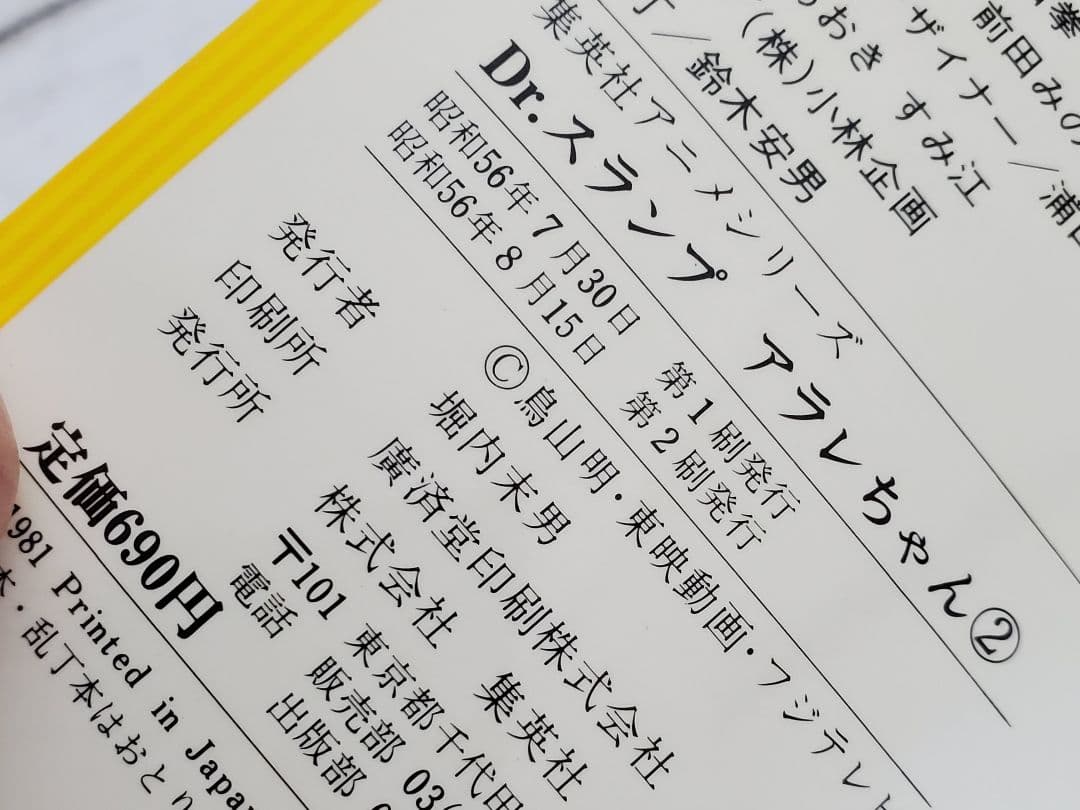 前田みの
おき すみ江
ザイナー／浦
(株)小林企画
／鈴木安男
集英社アニメシリーズ
Dr.スランプ アラレちゃん②
昭和56年7月30日 第1刷発行
昭和56年8月15日 第2刷発行
Ⓒ鳥山明・東映動画・フジテレビ
発行者 堀内末男
印刷所 廣済堂印刷株式会社
発行所 株式会社 集英社
〒101 東京都千代田
電話 販売部 03(
出版部 0
定価690円
1981 Printed in Japan
本・乱丁本はおとり